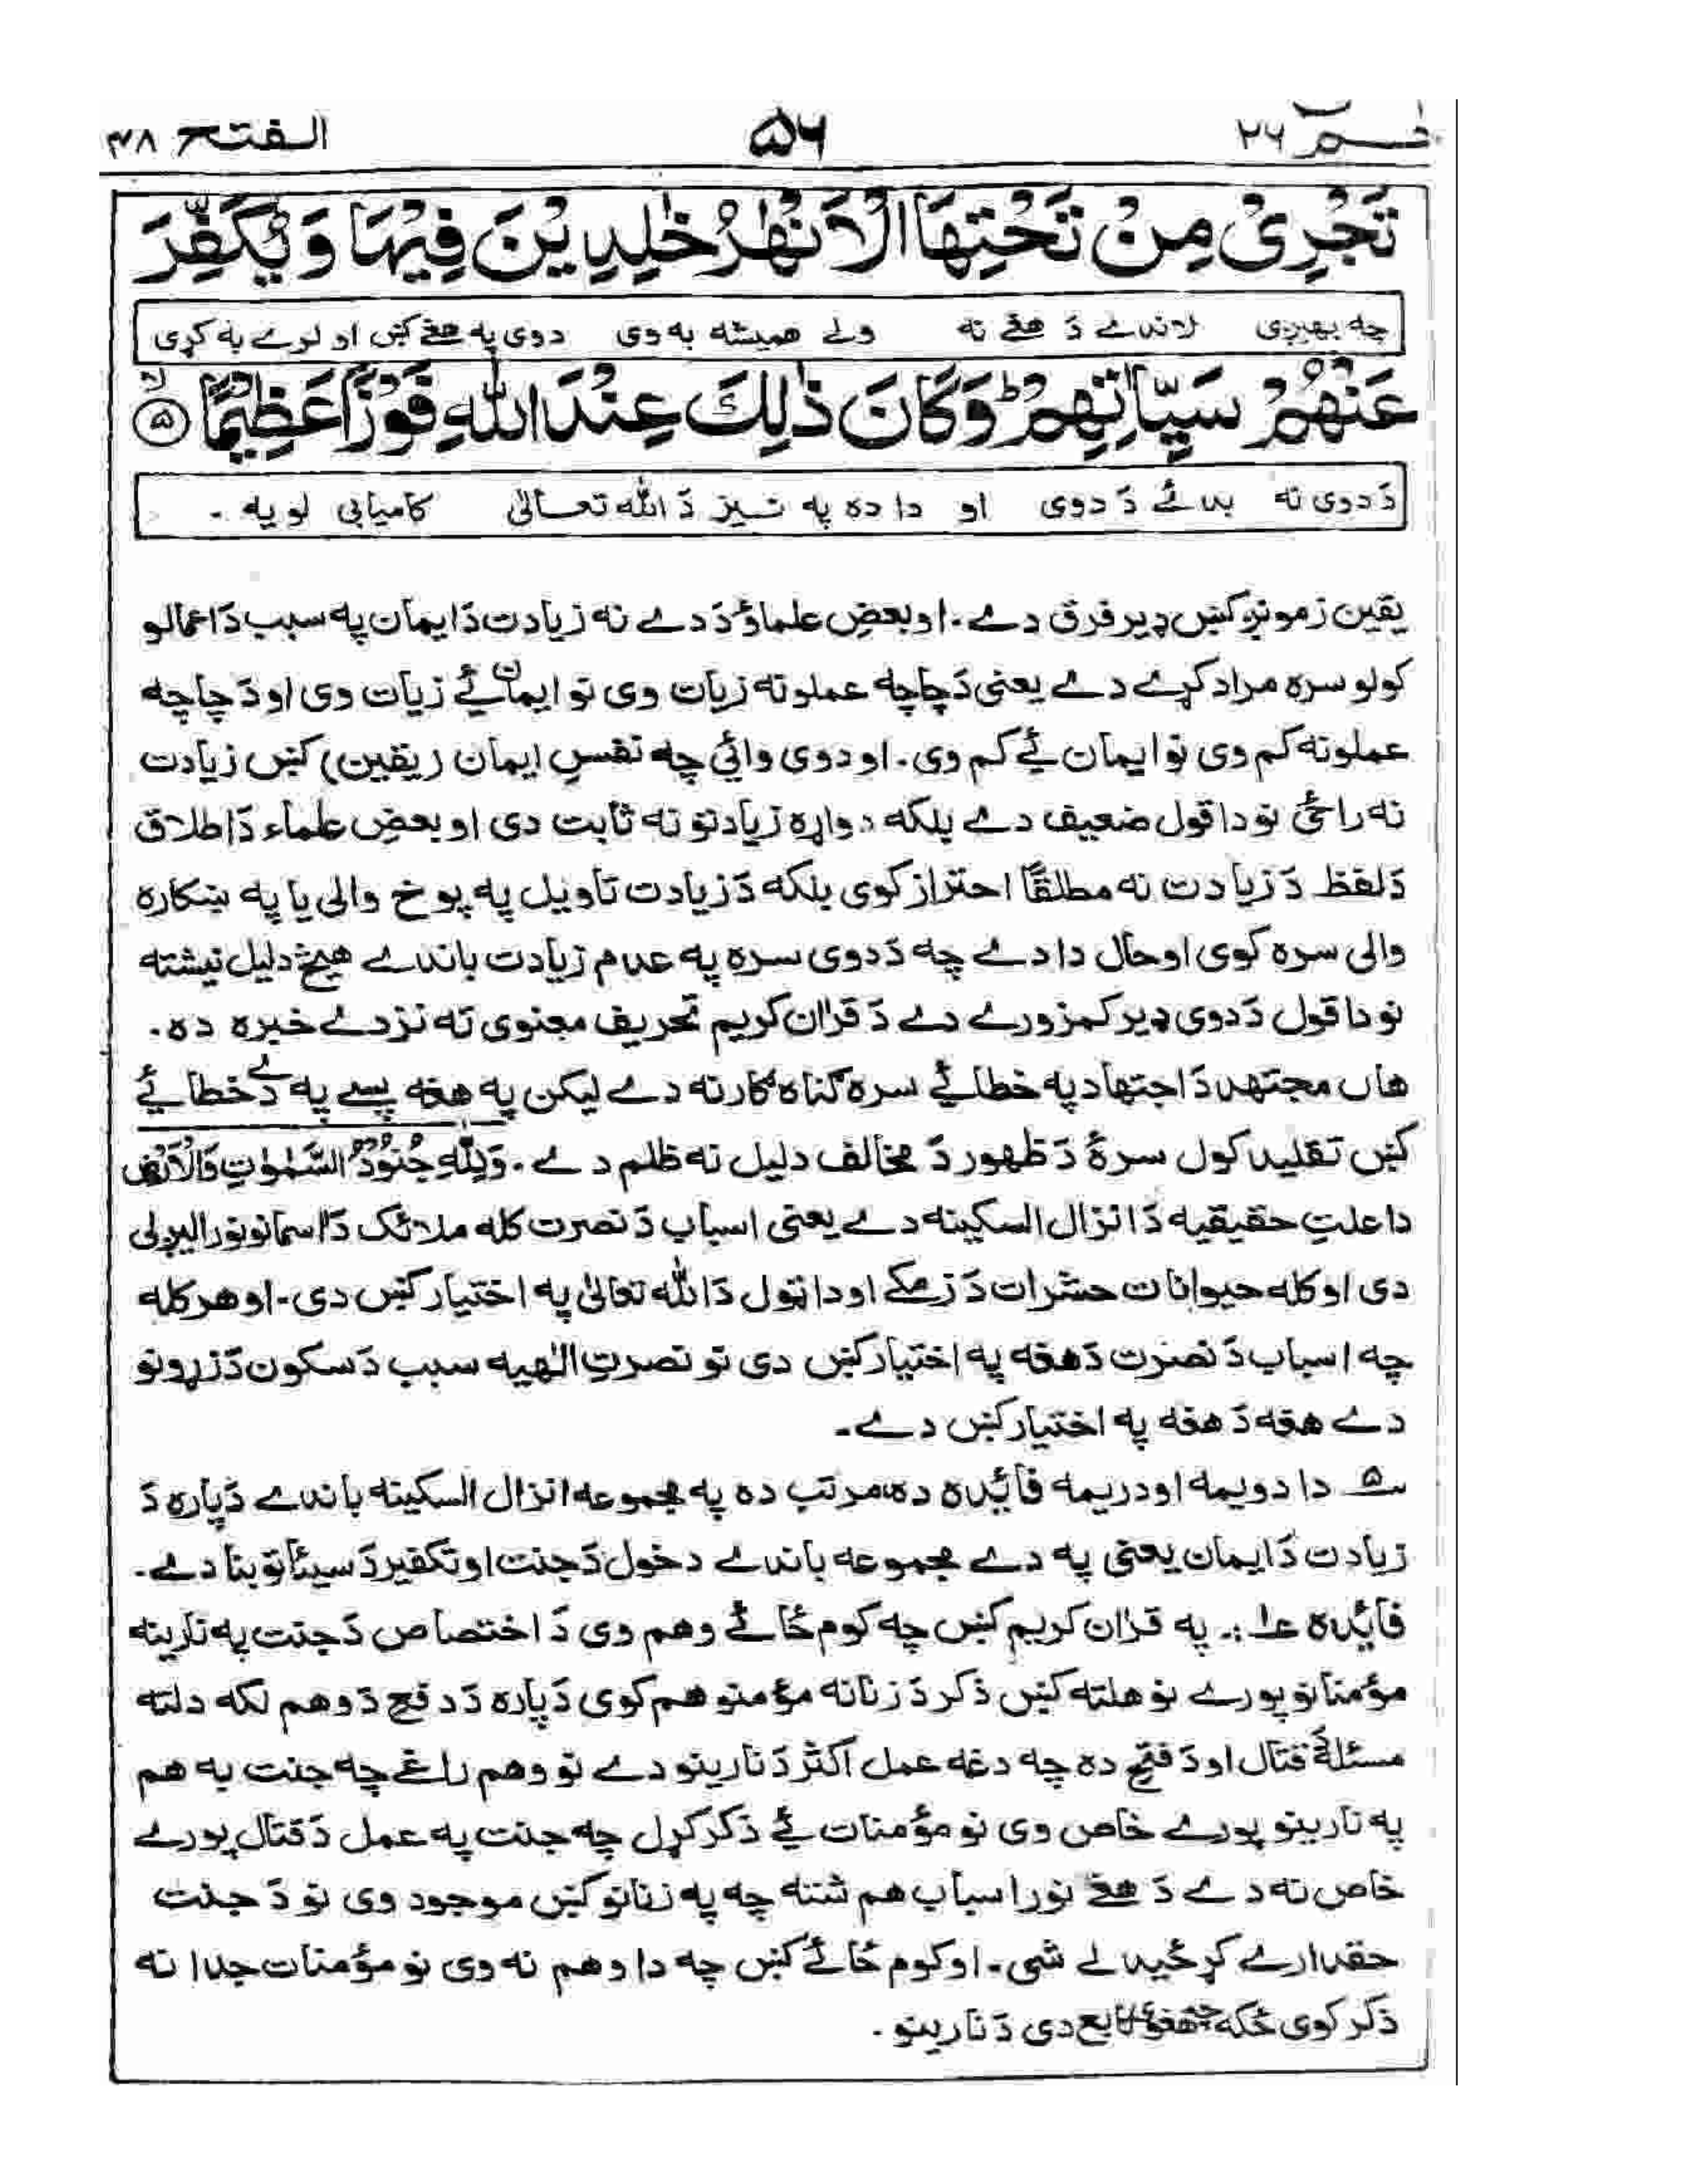 حٰم ۲۶ ۵۶ الفتح ۴۸
تَجْرِیْ مِنْ تَحْتِهَا الْاَنْهٰرُ خٰلِدِیْنَ فِیْهَا وَیُكَفِّرَ
چه بهیږی لاندے دَ هغے نه ولے همیشه به وی دوی په هغے کښ او لرے به کړی
عَنْهُمْ سَیِّاٰتِهِمْ ؕ وَكَانَ ذٰلِكَ عِنْدَ اللّٰهِ فَوْزًا عَظِیْمًا ۵ لا
دَ دوی نه بدئے دَ دوی او دا ده په نیز دَ الله تعالیٰ کامیابی لویه ۔
یقین زمونږ کښ ډیر فرق دے۔ او بعضِ علماؤ دَ دے نه زیادت دَ ایمان په سبب دَ اعمالو
کولو سره مراد کړے دے یعنی دَ چا چه عملونه زیات وی نو ایمان ئے زیات وی او دَ چا چه
عملونه کم وی نو ایمان ئے کم وی۔ او دوی وائی چه نفسِ ایمان (یقین) کښ زیادت
نه راځی نو دا قول ضعیف دے بلکه دواړه زیادتونه ثابت دی او بعضِ علماء دَ اطلاق
دَ لفظ دَ زیادت نه مطلقًا احتراز کوی بلکه دَ زیادت تاویل په پوخ والی یا په ښکاره
والی سره کوی او حال دا دے چه دَ دوی سره په عدم زیادت باندے هیڅ دلیل نیشته
نو دا قول دَ دوی ډیر کمزورے دے دَ قرٰان کریم تحریف معنوی ته نزدے خبره ده۔
هاں مجتهد دَ اجتهاد په خطائے سره گناه گار نه دے لیکن په هغه پسے په دے خطائے
کښ تقلید کول سرهٔ دَ ظهور دَ مخالف دلیل نه ظلم دے۔ وَلِلّٰهِ جُنُوْدُ السَّمٰوٰتِ وَالْاَرْضِ
دا علتِ حقیقیه دَ انزال السکینه دے یعنی اسباب دَ نصرت کله ملائک دَ اسمانونو رالیږلی
دی او کله حیوانات حشرات دَ زمکے او دا ټول دَ الله تعالیٰ په اختیار کښ دی۔ او هر کله
چه اسباب دَ نصرت دَ هغه په اختیار کښ دی نو نصرتِ الٰهیه سبب دَ سکون دَ زړونو
دے هغه دَ هغه په اختیار کښ دے۔
سـ۵ـ دا دویمه او دریمه فائده ده مرتب ده په مجموعه انزال السکینه باندے دَ پاره دَ
زیادت دَ ایمان یعنی په دے مجموعه باندے دخول دَ جنت او تکفیر دَ سیئاتو بنا دے۔
فائده ۱ :۔ په قرٰان کریم کښ چه کوم ځائے وهم وی دَ اختصاص دَ جنت په نارینه
مؤمنانو پورے نو هلته کښ ذکر دَ زنانه مؤمنو هم کوی دَ پاره دَ دفع دَ وهم لکه دلته
مسئله دَ قتال او دَ فتح ده چه دغه عمل اکثر دَ نارینو دے نو وهم راغے چه جنت به هم
په نارینو پورے خاص وی نو مؤمنات ئے ذکر کړل چه جنت په عمل دَ قتال پورے
خاص نه دے دَ هغے نور اسباب هم شته چه په زنانو کښ موجود وی نو دَ جنت
حقدارے کرځیدلے شی۔ او کوم ځائے کښ چه دا وهم نه وی نو مؤمنات جدا نه
ذکر کوی ځکه چه هغوئ تابع دی دَ نارینو۔